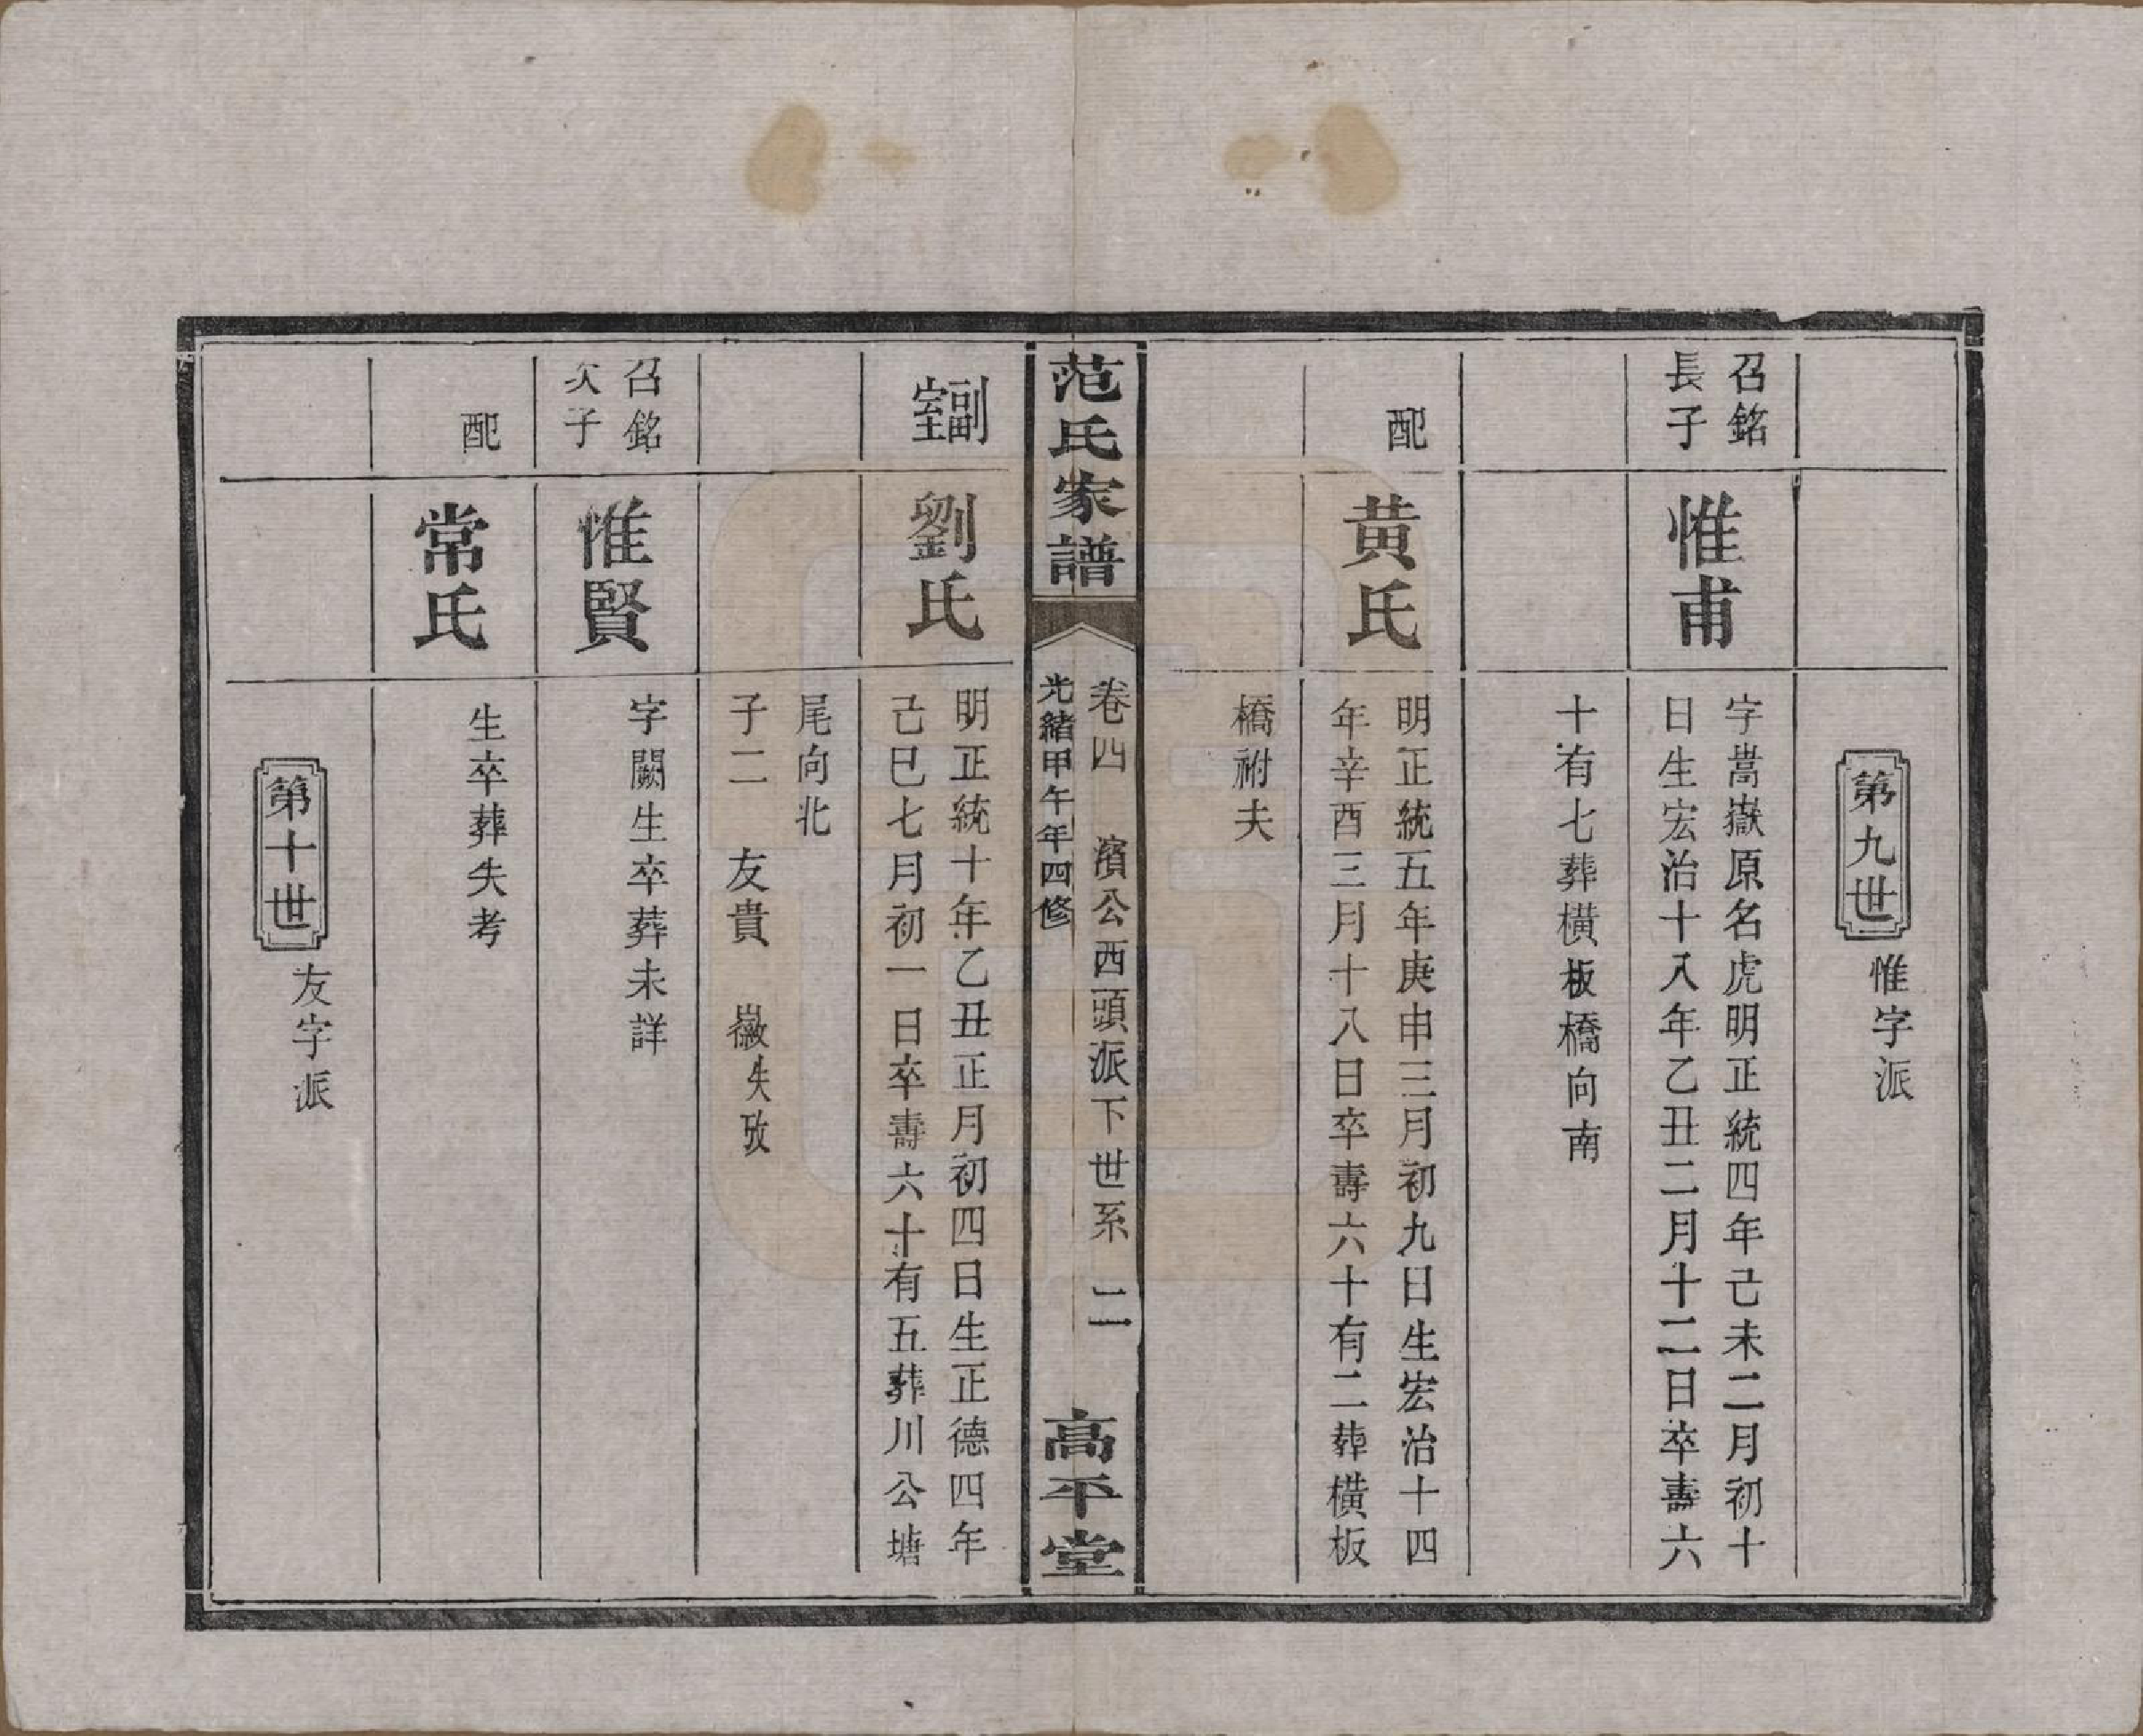 第九世 惟字派
召銘
長子
惟甫
字嵩嶽原名虎明正統四年己未二月初十
日生宏治十八年乙丑二月十二日卒壽六
十有七葬橫板橋向南
配
黄氏
明正統五年庚申三月初九日生宏治十四
年辛酉三月十八日卒壽六十有二葬橫板
橋祔夫
范氏家譜
卷四 濱公西頭派下世系 二
光緒甲午年四修
高平堂
副室
劉氏
明正統十年乙丑正月初四日生正德四年
己巳七月初一日卒壽六十有五葬川公塘
尾向北
子二 友貴 徽失攷
召銘
次子
惟賢
字闕生卒葬未詳
配
常氏
生卒葬失考
第十世 友字派